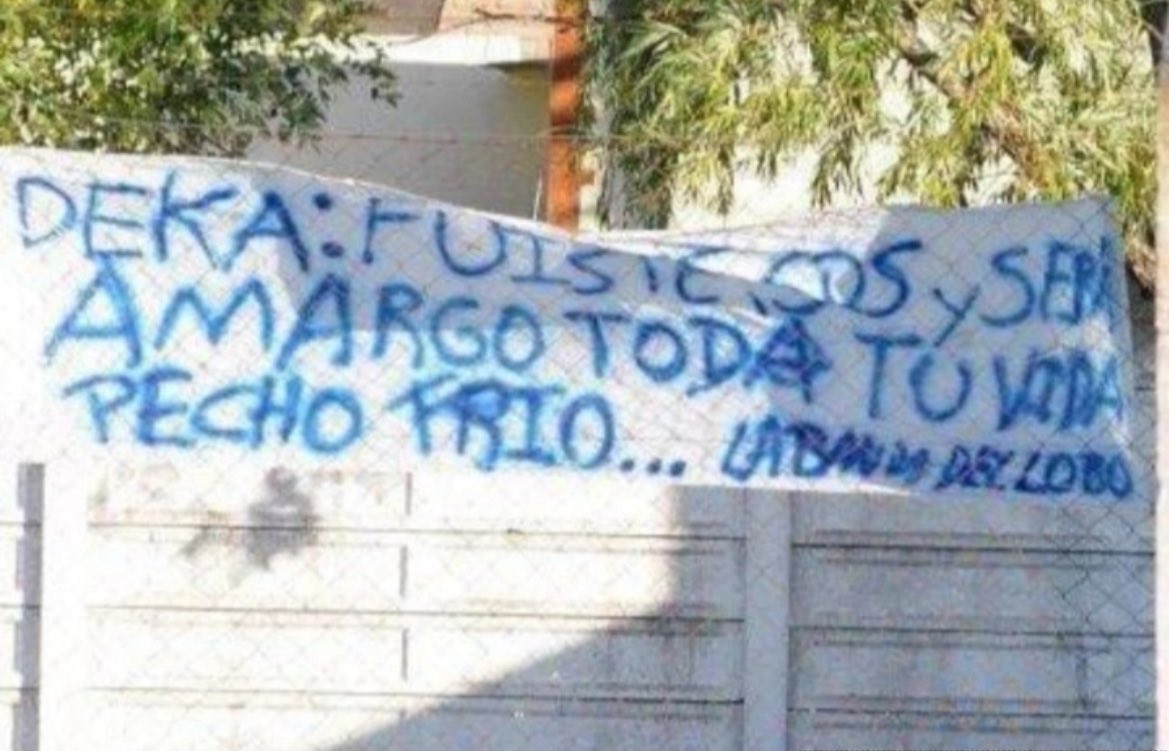 DEKA: FUISTE, SOS y SERÁ
AMARGO TODA TU VIDA
PECHO FRIO... LA BANDA DEL LOBO